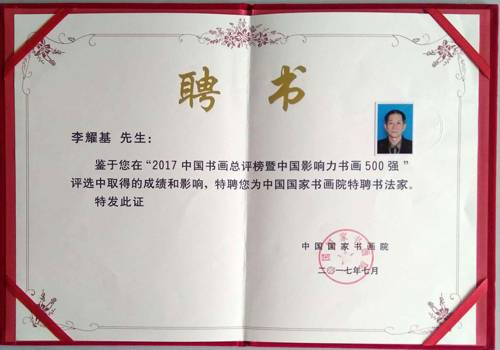 聘书
李耀基 先生：
鉴于您在“2017中国书画总评榜暨中国影响力书画500强”
评选中取得的成绩和影响，特聘您为中国国家书画院特聘书法家。
特发此证
中国国家书画院
二〇一七年七月